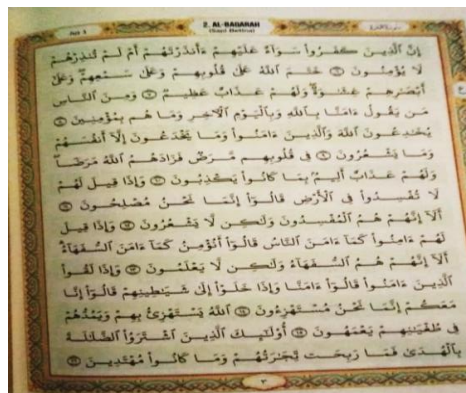 Juz 1
2. AL-BAQARAH
(Sapi Betina)
سورة البقرة
إِنَّ الَّذِينَ كَفَرُوا سَوَاءٌ عَلَيْهِمْ ءَأَنذَرْتَهُمْ أَمْ لَمْ تُنذِرْهُمْ
لَا يُؤْمِنُونَ خَتَمَ اللَّهُ عَلَىٰ قُلُوبِهِمْ وَعَلَىٰ سَمْعِهِمْ وَعَلَىٰ
أَبْصَارِهِمْ غِشَاوَةٌ وَلَهُمْ عَذَابٌ عَظِيمٌ وَمِنَ النَّاسِ
مَن يَقُولُ ءَامَنَّا بِاللَّهِ وَبِالْيَوْمِ الْآخِرِ وَمَا هُم بِمُؤْمِنِينَ
يُخَادِعُونَ اللَّهَ وَالَّذِينَ ءَامَنُوا وَمَا يَخْدَعُونَ إِلَّا أَنفُسَهُمْ
وَمَا يَشْعُرُونَ فِي قُلُوبِهِم مَّرَضٌ فَزَادَهُمُ اللَّهُ مَرَضًا
وَلَهُمْ عَذَابٌ أَلِيمٌ بِمَا كَانُوا يَكْذِبُونَ وَإِذَا قِيلَ لَهُمْ
لَا تُفْسِدُوا فِي الْأَرْضِ قَالُوا إِنَّمَا نَحْنُ مُصْلِحُونَ
أَلَا إِنَّهُمْ هُمُ الْمُفْسِدُونَ وَلَٰكِن لَّا يَشْعُرُونَ وَإِذَا قِيلَ
لَهُمْ ءَامِنُوا كَمَا ءَامَنَ النَّاسُ قَالُوا أَنُؤْمِنُ كَمَا ءَامَنَ السُّفَهَاءُ
أَلَا إِنَّهُمْ هُمُ السُّفَهَاءُ وَلَٰكِن لَّا يَعْلَمُونَ وَإِذَا لَقُوا
الَّذِينَ ءَامَنُوا قَالُوا ءَامَنَّا وَإِذَا خَلَوْا إِلَىٰ شَيَاطِينِهِمْ قَالُوا إِنَّا
مَعَكُمْ إِنَّمَا نَحْنُ مُسْتَهْزِءُونَ اللَّهُ يَسْتَهْزِئُ بِهِمْ وَيَمُدُّهُمْ
فِي طُغْيَانِهِمْ يَعْمَهُونَ أُولَٰئِكَ الَّذِينَ اشْتَرَوُا الضَّلَالَةَ
بِالْهُدَىٰ فَمَا رَبِحَت تِّجَارَتُهُمْ وَمَا كَانُوا مُهْتَدِينَ
٣